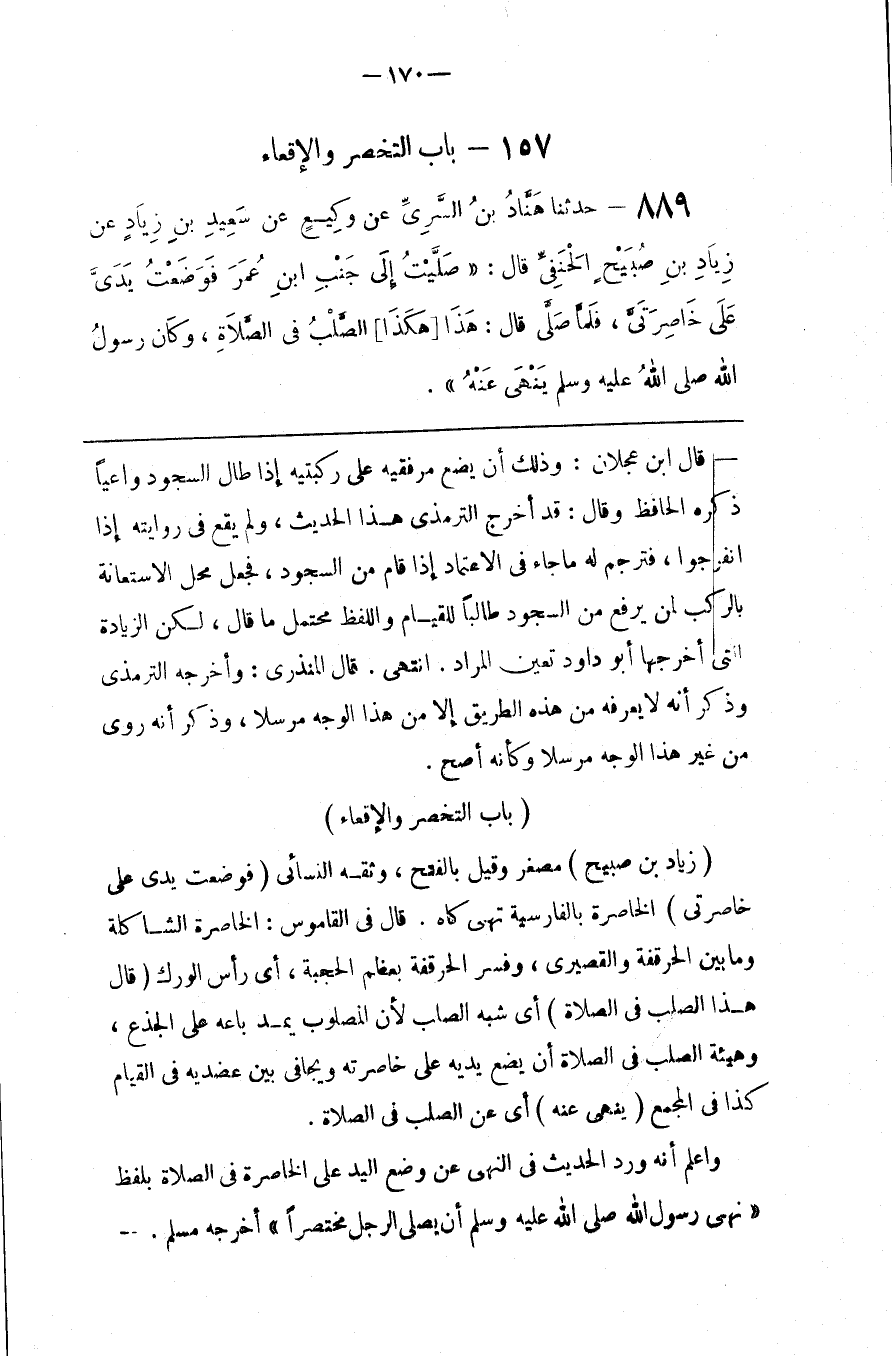 — ١٧٠ —
١٥٧ — باب التخصر والإقعاء
٨٨٩ — حدثنا هَنَّادُ بنُ السَّرِىِّ عن وكِيعٍ عن سَعِيدِ بنِ زِيَادٍ عن
زِيَادِ بنِ صُبَيْحٍ الْحَنَفِىِّ قال : « صَلَّيْتُ إِلَى جَنْبِ ابنِ عُمَرَ فَوَضَعْتُ يَدَىَّ
عَلَى خَاصِرَتَىَّ ، فَلَمَّا صَلَّى قال : هَذَا [هكَذَا] الصَّلْبُ فى الصَّلَاةِ ، وكَان رسولُ
الله صلى اللهُ عليه وسلم يَنْهَى عَنْهُ » .
— قال ابن عجلان : وذلك أن يضع مرفقيه على ركبتيه إذا طال السجود واعياً
ذكره الحافظ وقال : قد أخرج الترمذى هذا الحديث ، ولم يقع فى روايته إذا
انفرجوا ، فترجم له ماجاء فى الاعتماد إذا قام من السجود ، فجعل محل الاستعانة
بالركب لمن يرفع من السجود طالباً للقيام واللفظ محتمل ما قال ، لكن الزيادة
التى أخرجها أبو داود تعين المراد . انتهى . قال المنذرى : وأخرجه الترمذى
وذكر أنه لا يعرفه من هذه الطريق إلا من هذا الوجه مرسلا ، وذكر أنه روى
من غير هذا الوجه مرسلا وكأنه أصح .
( باب التخصر والإقعاء )
( زياد بن صبيح ) مصغر وقيل بالفتح ، وثقه النسائى ( فوضعت يدى على
خاصرتى ) الخاصرة بالفارسية تهى كاه . قال فى القاموس : الخاصرة الشاكلة
ومابين الحرقفة والقصيرى ، وفسر الحرقفة بعظم الحجبة ، أى رأس الورك ( قال
هذا الصلب فى الصلاة ) أى شبه الصلب لأن المصلوب يمد باعه على الجذع ،
وهيئة الصلب فى الصلاة أن يضع يديه على خاصرته ويجافى بين عضديه فى القيام
كذا فى المجمع ( ينهى عنه ) أى عن الصلب فى الصلاة .
واعلم أنه ورد الحديث فى النهى عن وضع اليد على الخاصرة فى الصلاة بلفظ
« نهى رسول الله صلى الله عليه وسلم أن يصلى الرجل مختصراً » أخرجه مسلم . —